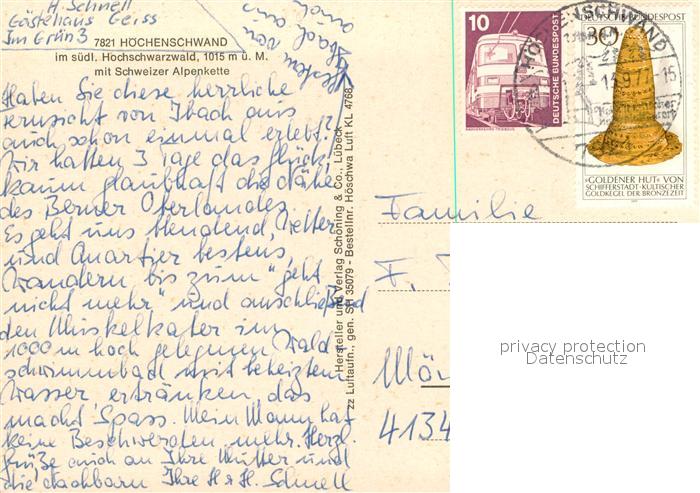 H. Schnell
Gästehaus Geiss
Im Grün 3
7821 HÖCHENSCHWAND
im südl. Hochschwarzwald, 1015 m ü. M.
mit Schweizer Alpenkette
Haben Sie diese herrliche
Fernsicht von Ibach aus
auch schon einmal erlebt?
Wir hatten 3 Tage das Glück,
kaum glaubhaft die Nähe
des Berner Oberlandes
Es geht uns blendend, Wetter
und Quartier bestens,
Wandern bis zum "geht
nicht mehr" und anschließend
den Muskelkater im
1000 m hoch gelegenen Wald
schwimmbad mit beheiztem
Wasser ertränken, das
macht Spass. Mein Mann hat
keine Beschwerden mehr. Herzl.
Grüße auch an Ihre Mutter und
die Nachbarn Ihre H & H. Schnell
Hersteller und Verlag Schöning & Co., Lübeck
zz Luftaufn.: gen. SH 35079 - Bestellnr. Höschwa Luft KL 4768
10
DEUTSCHE BUNDESPOST
DEUTSCHE BUNDESPOST
30
HÖCHENSCHWAND
14.9.77-15
»GOLDENER HUT« VON
SCHIFFERSTADT·KULTISCHER
GOLDKEGEL DER BRONZEZEIT
Familie
F.
Mö
4134
privacy protection
Datenschutz